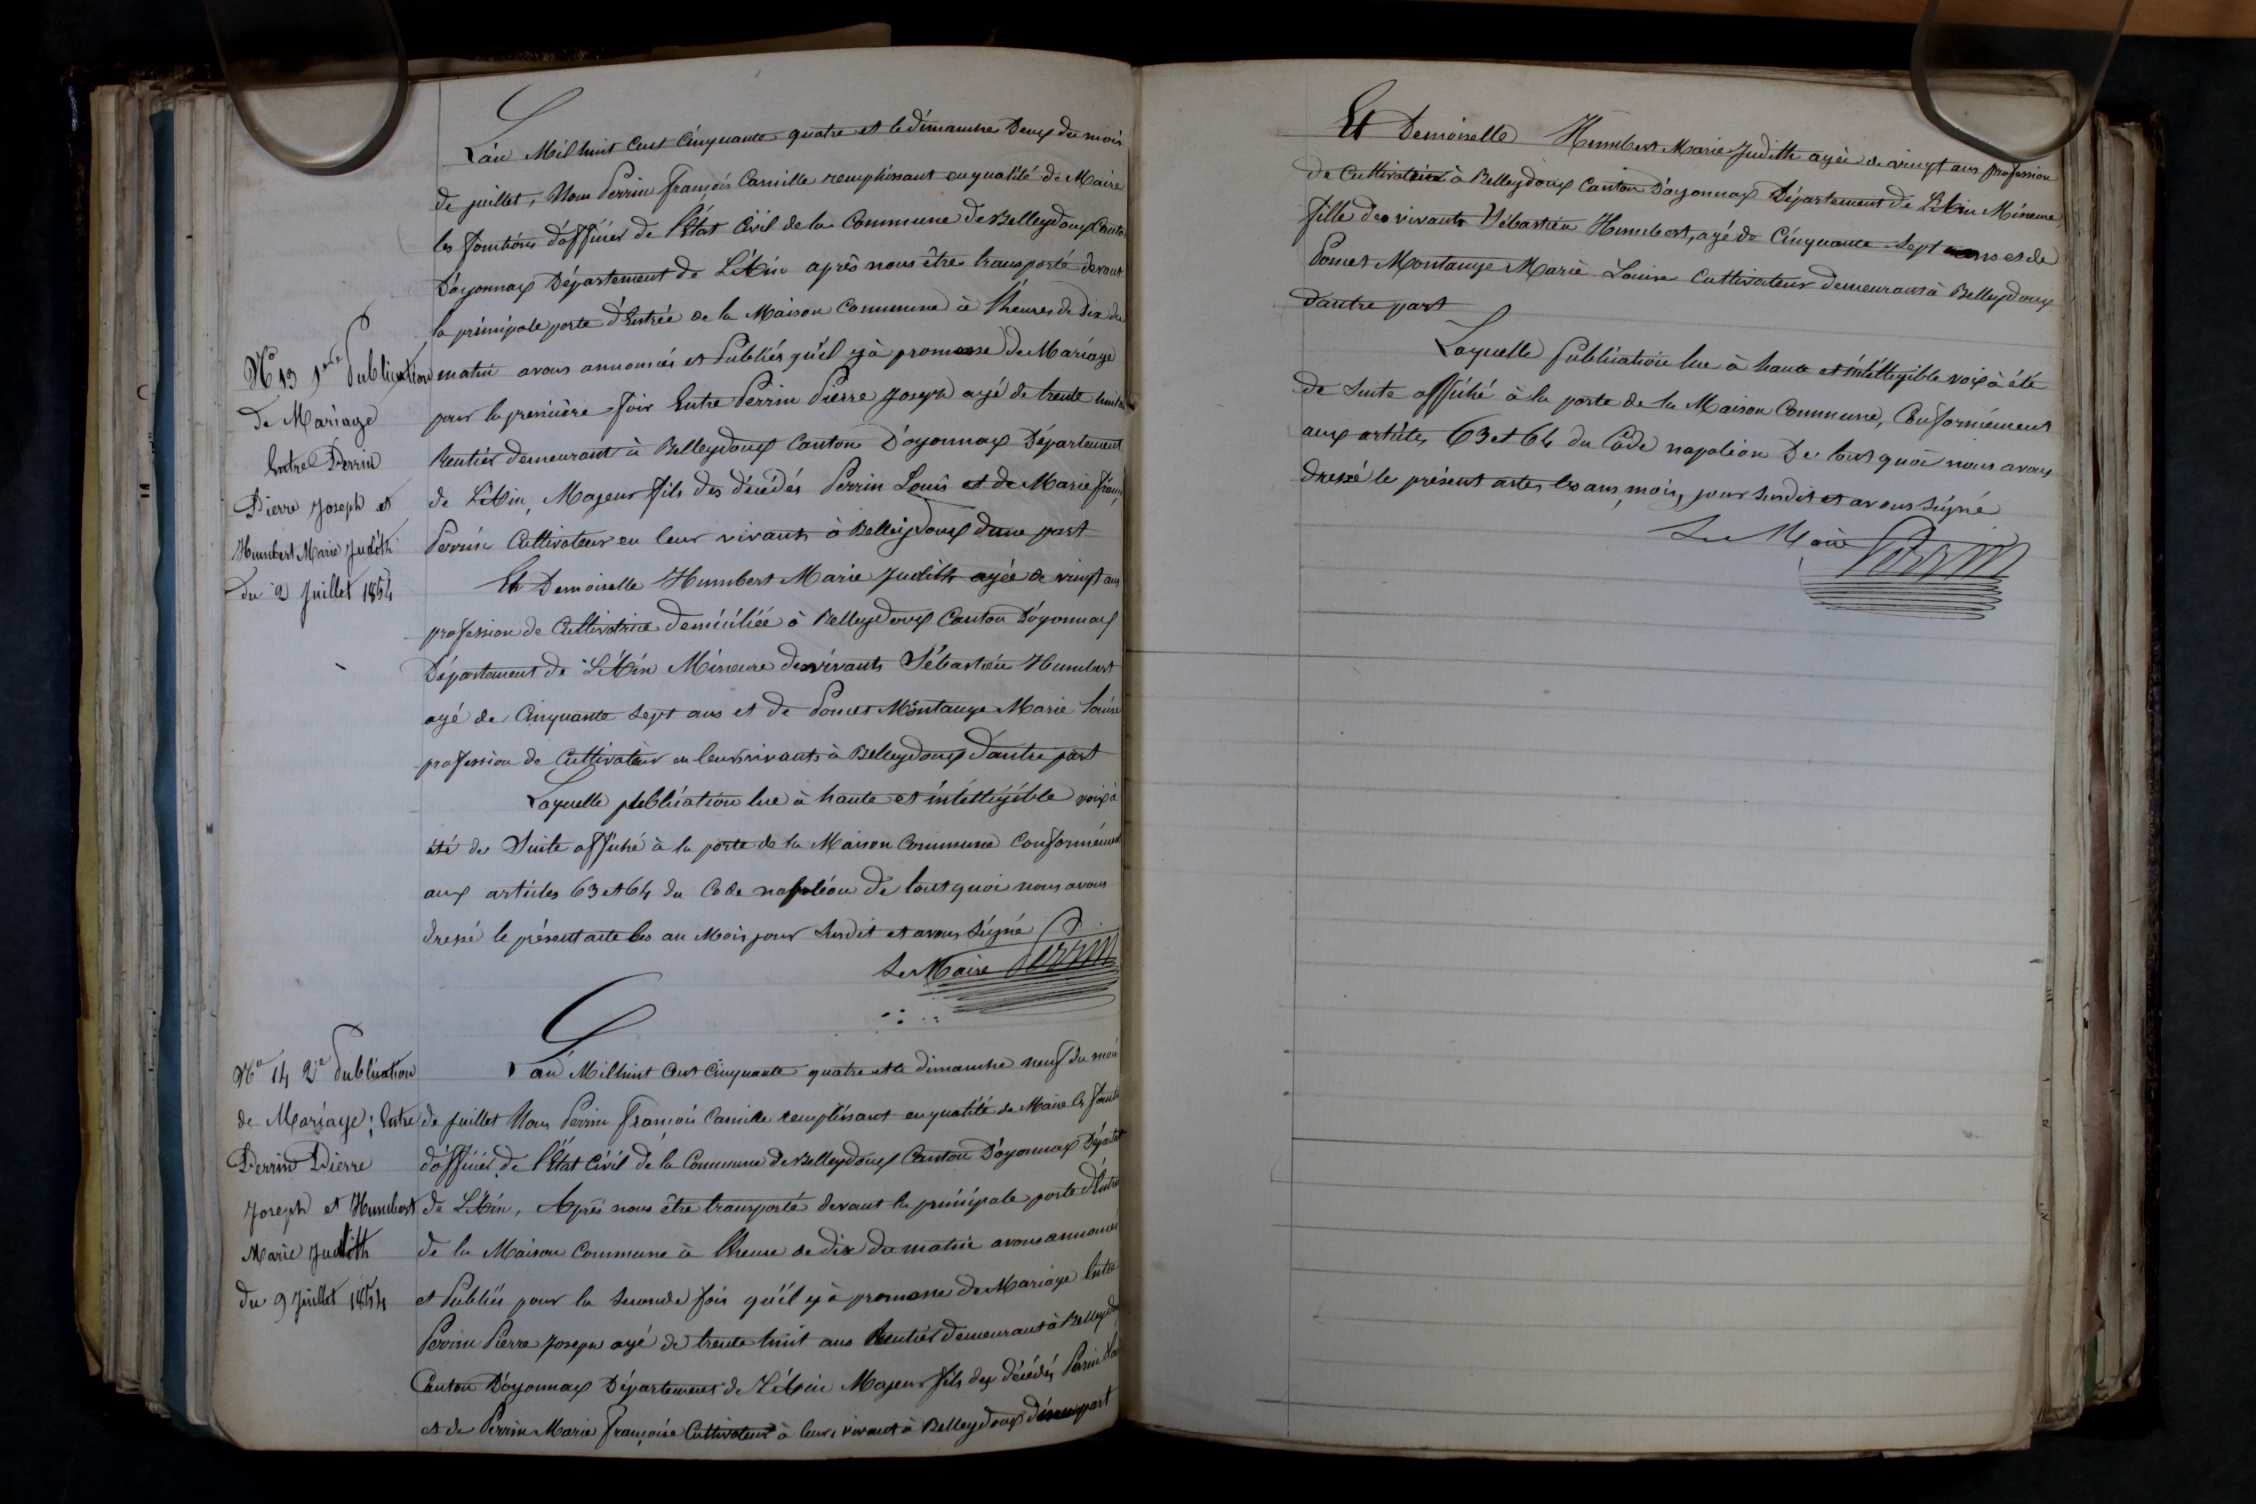 L'an Mil huit Cent Cinquante quatre et le dimanche Deux du mois
de juillet, Nous Perrin François Camille remplissant en qualité de Maire
les fonctions d'officier de l'État Civil de la Commune de Belleydoux Canton
D'oyonnax Département de L'Ain après nous être transporté devant
la principale porte d'Entrée de la Maison Commune à l'heure de dix du
matin avons annoncés et Publiés qu'il y à promesse de Mariage
pour la première fois Entre Perrin Pierre Joseph agé de trente huit
Rentier demeurant à Belleydoux Canton D'oyonnax Département
de L'Ain, Majeur fils des décédés Perrin Louis et de Marie Franç
Perrin Cultivateur en leur vivants à Belleydoux d'une part
Et Demoiselle Humbert Marie Judith agée de vingt ans
profession de Cultivatrice domiciliée à Belleydoux Canton D'oyonnax
Département de L'Ain Mineure des vivants Sébastien Humbert
agé de Cinquante sept ans et de Poncet Montange Marie Louise
profession de Cultivateur en leur vivants à Belleydoux d'autre part
Laquelle publication lue à haute et intelligible voix à
été de Suite affiché à la porte de la Maison Commune Conformément
aux articles 63 et 64 du Code napoléon de tout quoi nous avons
dressé le présent acte les an Mois jour Susdit et avons Signé
Le Maire Perrin
N° 13 1ère Publication
de Mariage
Entre Perrin
Pierre Joseph et
Humbert Marie Judith
du 2 Juillet 1854
L'an Mil huit Cent Cinquante quatre et le dimanche neuf du mois
de juillet Nous Perrin François Camille remplissant en qualité de Maire les foncti
d'officier de l'État Civil de la Commune de Belleydoux Canton D'oyonnax Départt
de L'Ain, Après nous être transporté devant la principale porte d'Entrée
de la Maison Commune à l'heure de dix du matin avons annoncé
et Publiés pour la seconde fois qu'il y à promesse de Mariage Entre
Perrin Pierre Joseph agé de trente huit ans Rentier demeurant à Belleydoux
Canton D'oyonnax Département de L'Ain Majeur fils des décédés Perrin Louis
et de Perrin Marie Françoise Cultivateur à leurs vivant à Belleydoux d'une part
N° 14 2e Publication
de Mariage; Entre
Perrin Pierre
Joseph et Humbert
Marie Judith
du 9 Juillet 1854
Et Demoiselle Humbert Marie Judith agée de vingt ans profession
de Cultivatrice à Belleydoux Canton D'oyonnax Département de L'Ain Mineure
fille des vivants Sébastien Humbert, agé de Cinquante Sept ans et de
Poncet Montange Marie Louise Cultivateur demeurant à Belleydoux
d'autre part
Laquelle Publication lue à haute et intelligible voix à été
de Suite affiché à la porte de la Maison Commune, Conformément
aux articles 63 et 64 du Code napoléon De tout quoi nous avons
dressé le présent acte, les ans, mois, jour Susdit et avons Signé
Le Maire Perrin